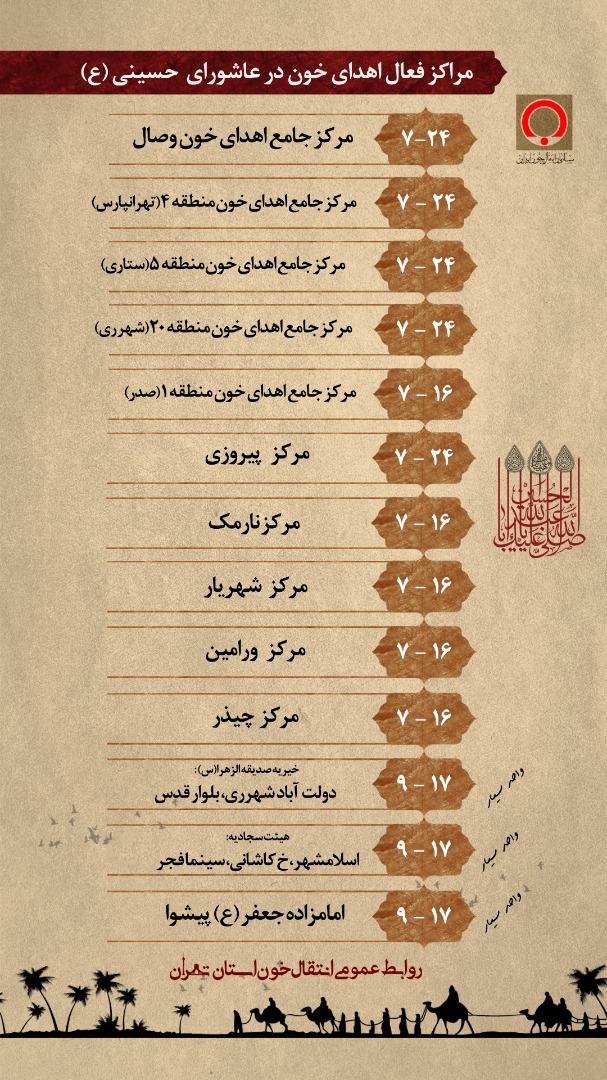 مراکز فعال اهدای خون در عاشورای حسینی (ع)
۷-۲۴ مرکز جامع اهدای خون وصال
۷ - ۲۴ مرکز جامع اهدای خون منطقه ۴(تهرانپارس)
۷ - ۲۴ مرکز جامع اهدای خون منطقه ۵(ستاری)
۷ - ۲۴ مرکز جامع اهدای خون منطقه ۲۰(شهرری)
۷ - ۱۶ مرکز جامع اهدای خون منطقه ۱(صدر)
۷ - ۲۴ مرکز پیروزی
۷ - ۱۶ مرکز نارمک
۷ - ۱۶ مرکز شهریار
۷ - ۱۶ مرکز ورامین
۷ - ۱۶ مرکز چیذر
واحد سیار
۹ - ۱۷ خیریه صدیقه الزهرا(س):
دولت آباد شهرری، بلوار قدس
واحد سیار
۹ - ۱۷ هیئت سجادیه:
اسلامشهر، خ کاشانی، سینما فجر
واحد سیار
۹ - ۱۷ امامزاده جعفر (ع) پیشوا
روابط عمومی انتقال خون استان تهران